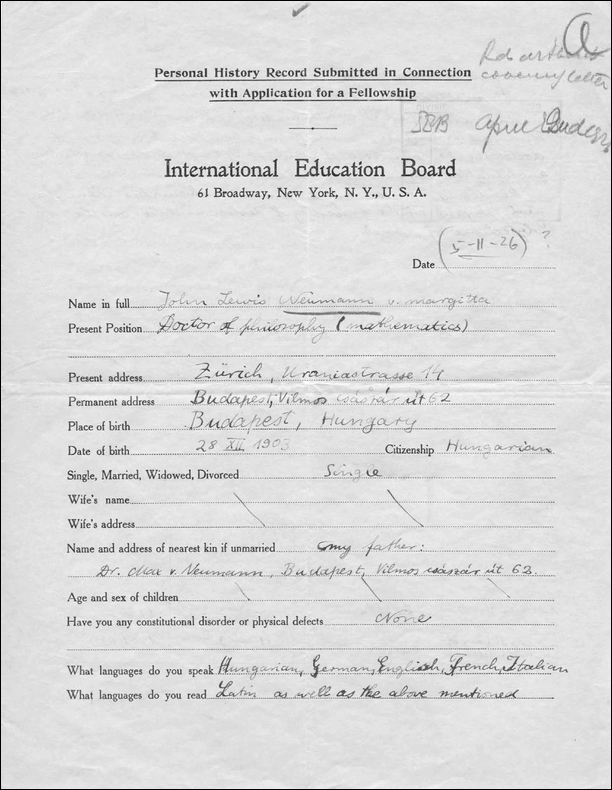 a
covering letter
Personal History Record Submitted in Connection
with Application for a Fellowship
April
International Education Board
61 Broadway, New York, N. Y., U. S. A.
Date (5-11-26) ?
Name in full John Lewis Neumann v. Margitta
Present Position Doctor of philosophy (mathematics)
Present address Zürich, Uraniastrasse 14
Permanent address Budapest, Vilmos császár út 62
Place of birth Budapest, Hungary
Date of birth 28 XII 1903 Citizenship Hungarian
Single, Married, Widowed, Divorced Single
Wife's name
Wife's address
Name and address of nearest kin if unmarried my father:
Dr. Max v. Neumann, Budapest, Vilmos császár út 62.
Age and sex of children
Have you any constitutional disorder or physical defects None
What languages do you speak Hungarian, German, English, French, Italian
What languages do you read Latin as well as the above mentioned